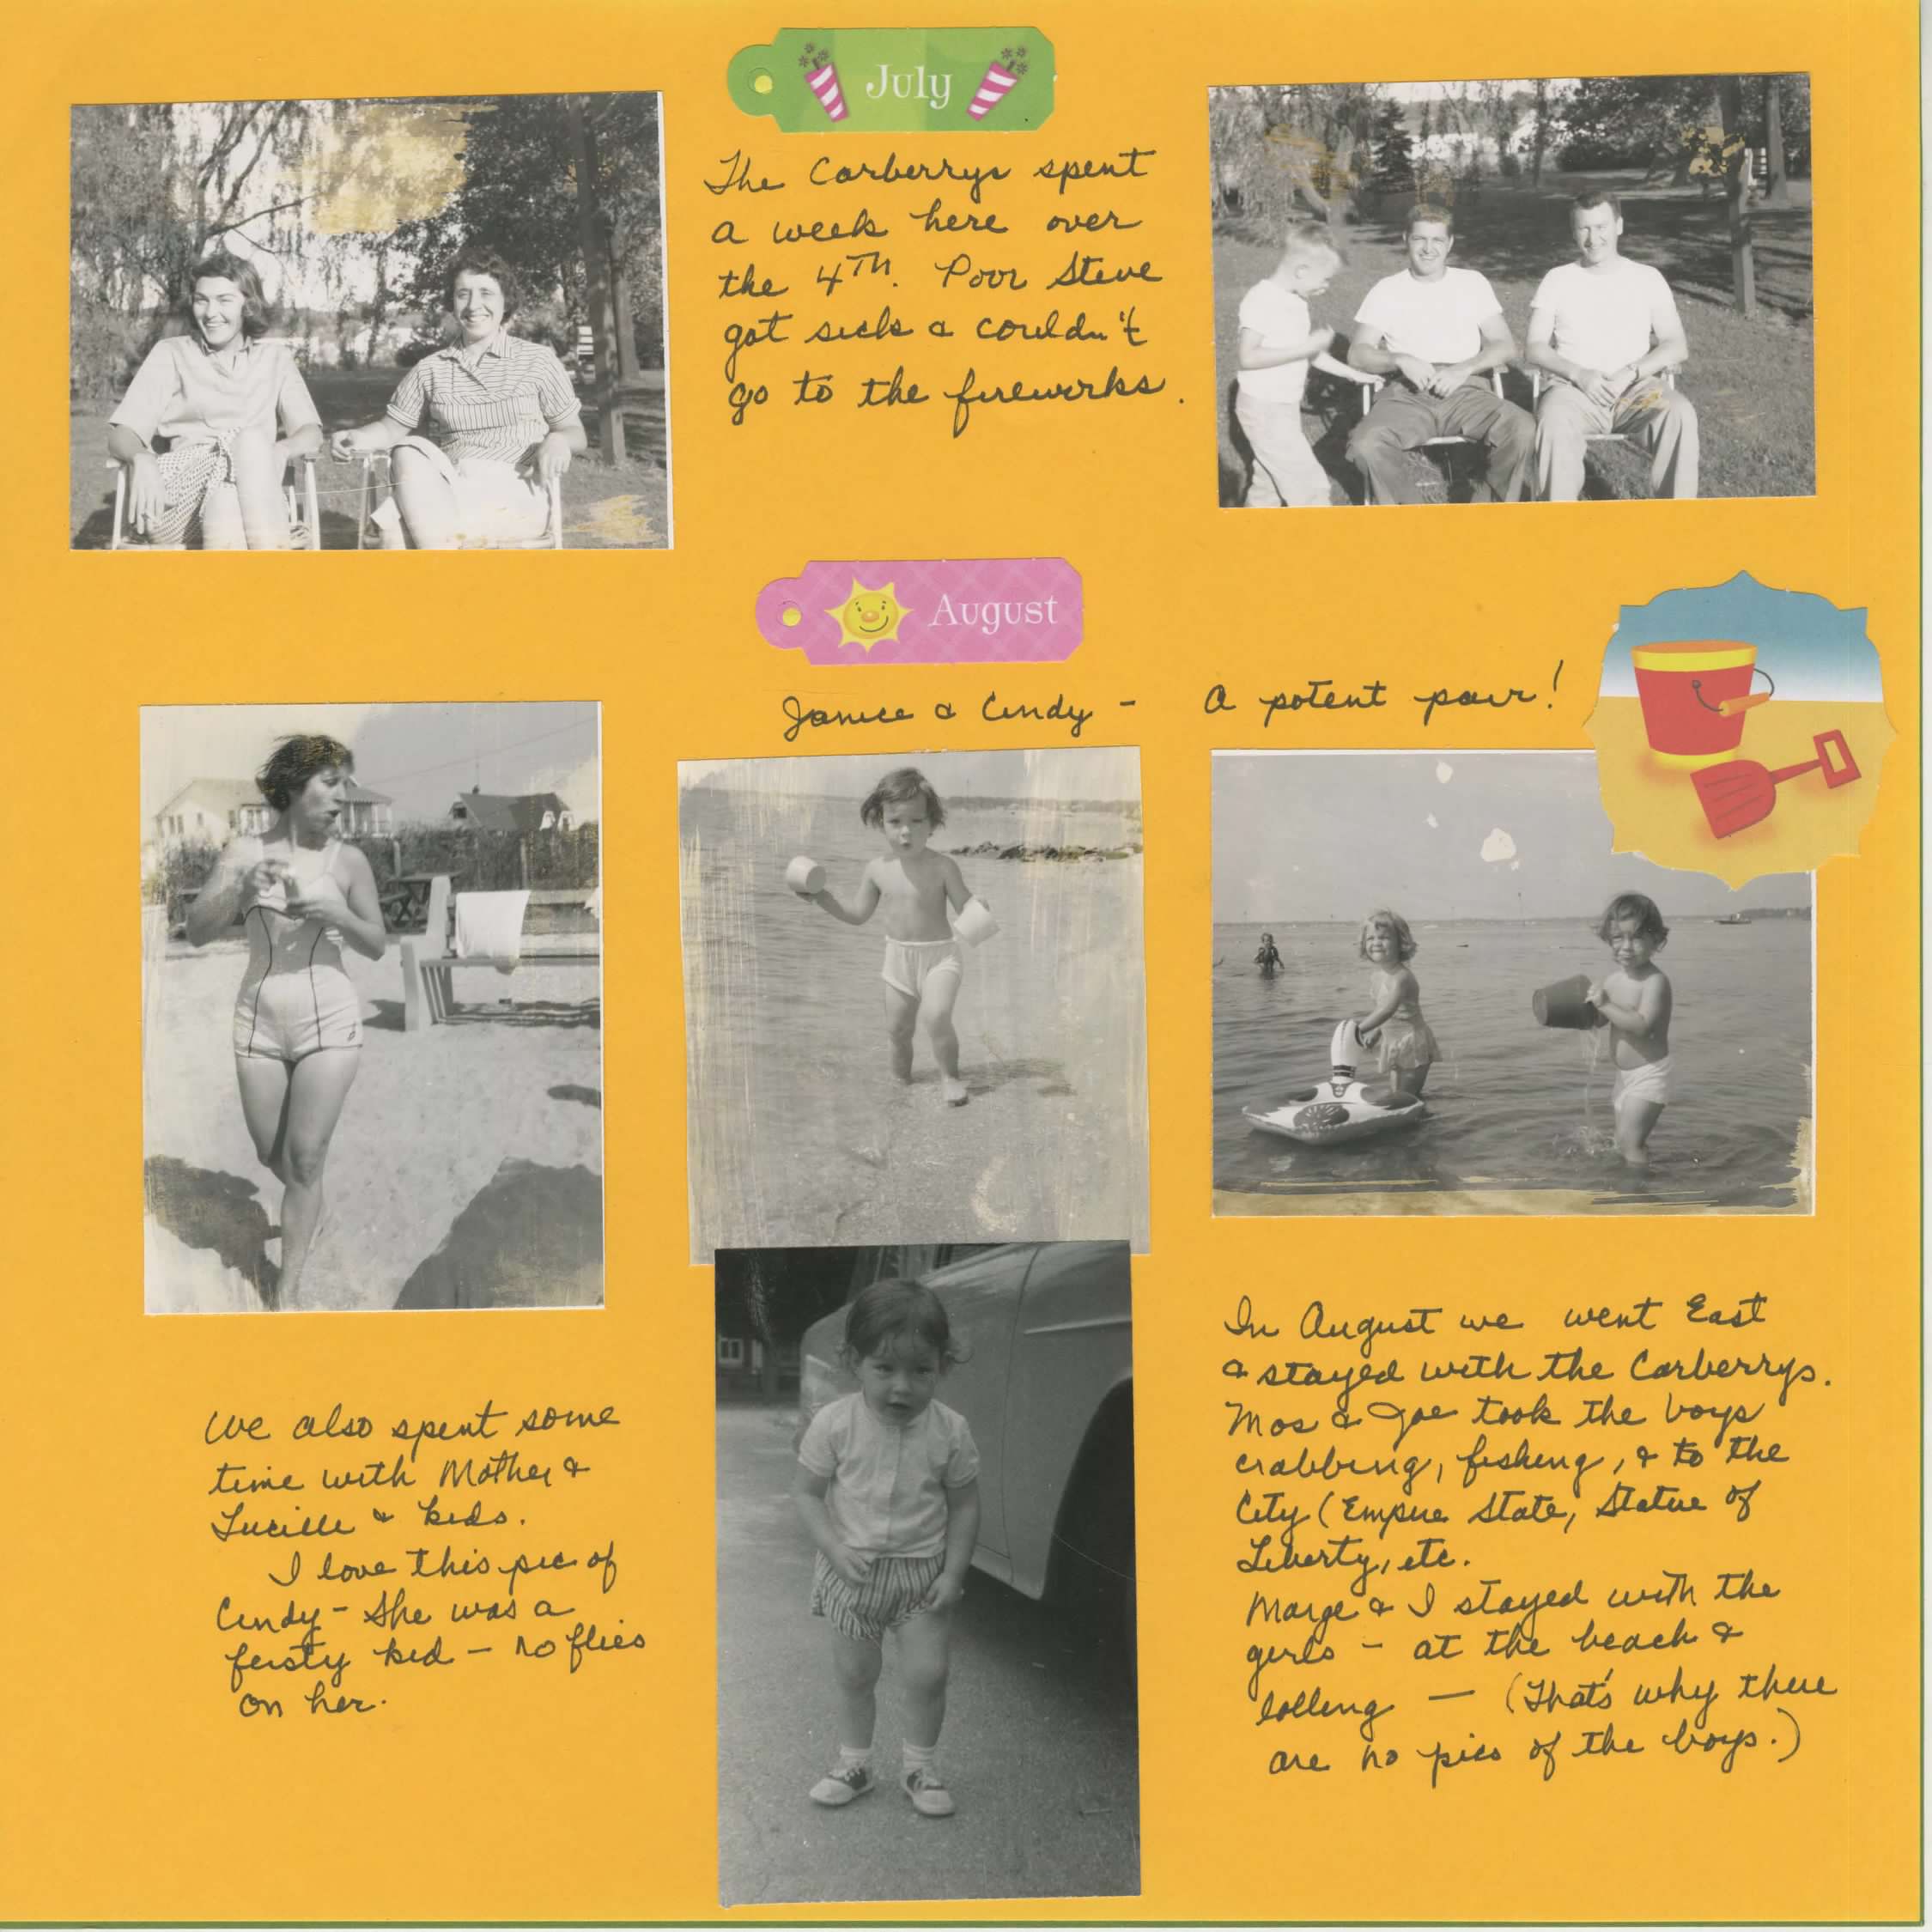 July
The Carberrys spent
a week here over
the 4TH. Poor Steve
got sick & couldn't
go to the fireworks.
August
Janice & Cindy - A potent pair!
We also spent some
time with Mother &
Lucille & kids.
I love this pic of
Cindy - She was a
feisty kid - no flies
on her.
In August we went East
& stayed with the Carberrys.
Mos & Joe took the boys
crabbing, fishing, & to the
City (Empire State, Statue of
Liberty, etc.
Marge & I stayed with the
girls - at the beach &
lolling — (That's why there
are no pics of the boys.)